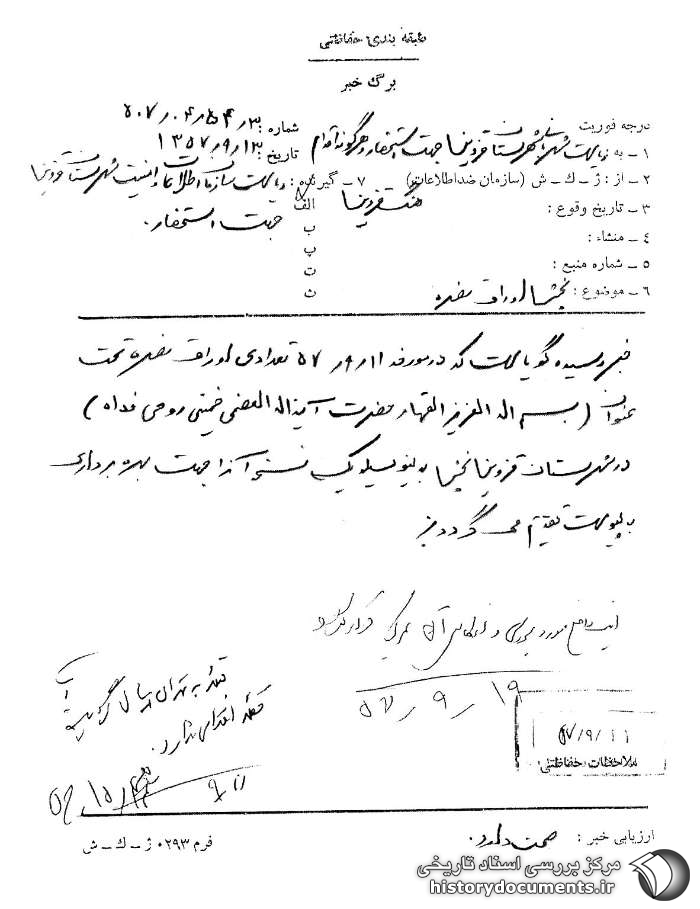 طبقه بندی حفاظتی
برگ خبر
درجه فوریت
شماره :
۱ ـ به ریاست شهربانی شهرستان قزوین جهت استحضار و هرگونه اقدام
تاریخ : ۱۳۵۷/۹/۱۳
۲ ـ از : ژ ـ ك ـ ش (سازمان ضداطلاعات) هنگ قزوین
۷ ـ گیرنده : ریاست سازمان اطلاعات و امنیت شهرستان قزوین
الف
جهت استحضار.
۳ ـ تاریخ وقوع :
ب
۴ ـ منشاء :
پ
۵ ـ شماره منبع :
ت
۶ ـ موضوع : پخش اوراق مضره
ث
خبر رسیده گویاست که در مورخه ۵۷/۹/۱۱ تعدادی اوراق مضره تحت
عنوان (بسم اله العزیز القهار حضرت آیت اله العضمی خمینی روحی فداه)
در شهرستان قزوین پخش بدینوسیله یک نسخه آنرا جهت بهره برداری
به پیوست تقدیم می گردد
قرار گرفت
۵۷/۹/۱۹
۵۷/۹/۱۱
ملاحظات حفاظتی
به تهران ارسال گردید
اقدامی ندارد.
ارزیابی خبر : صحت دارد.
فرم ۰۲۹۳ ژ ـ ك ـ ش
مرکز بررسی اسناد تاریخی
historydocuments.ir